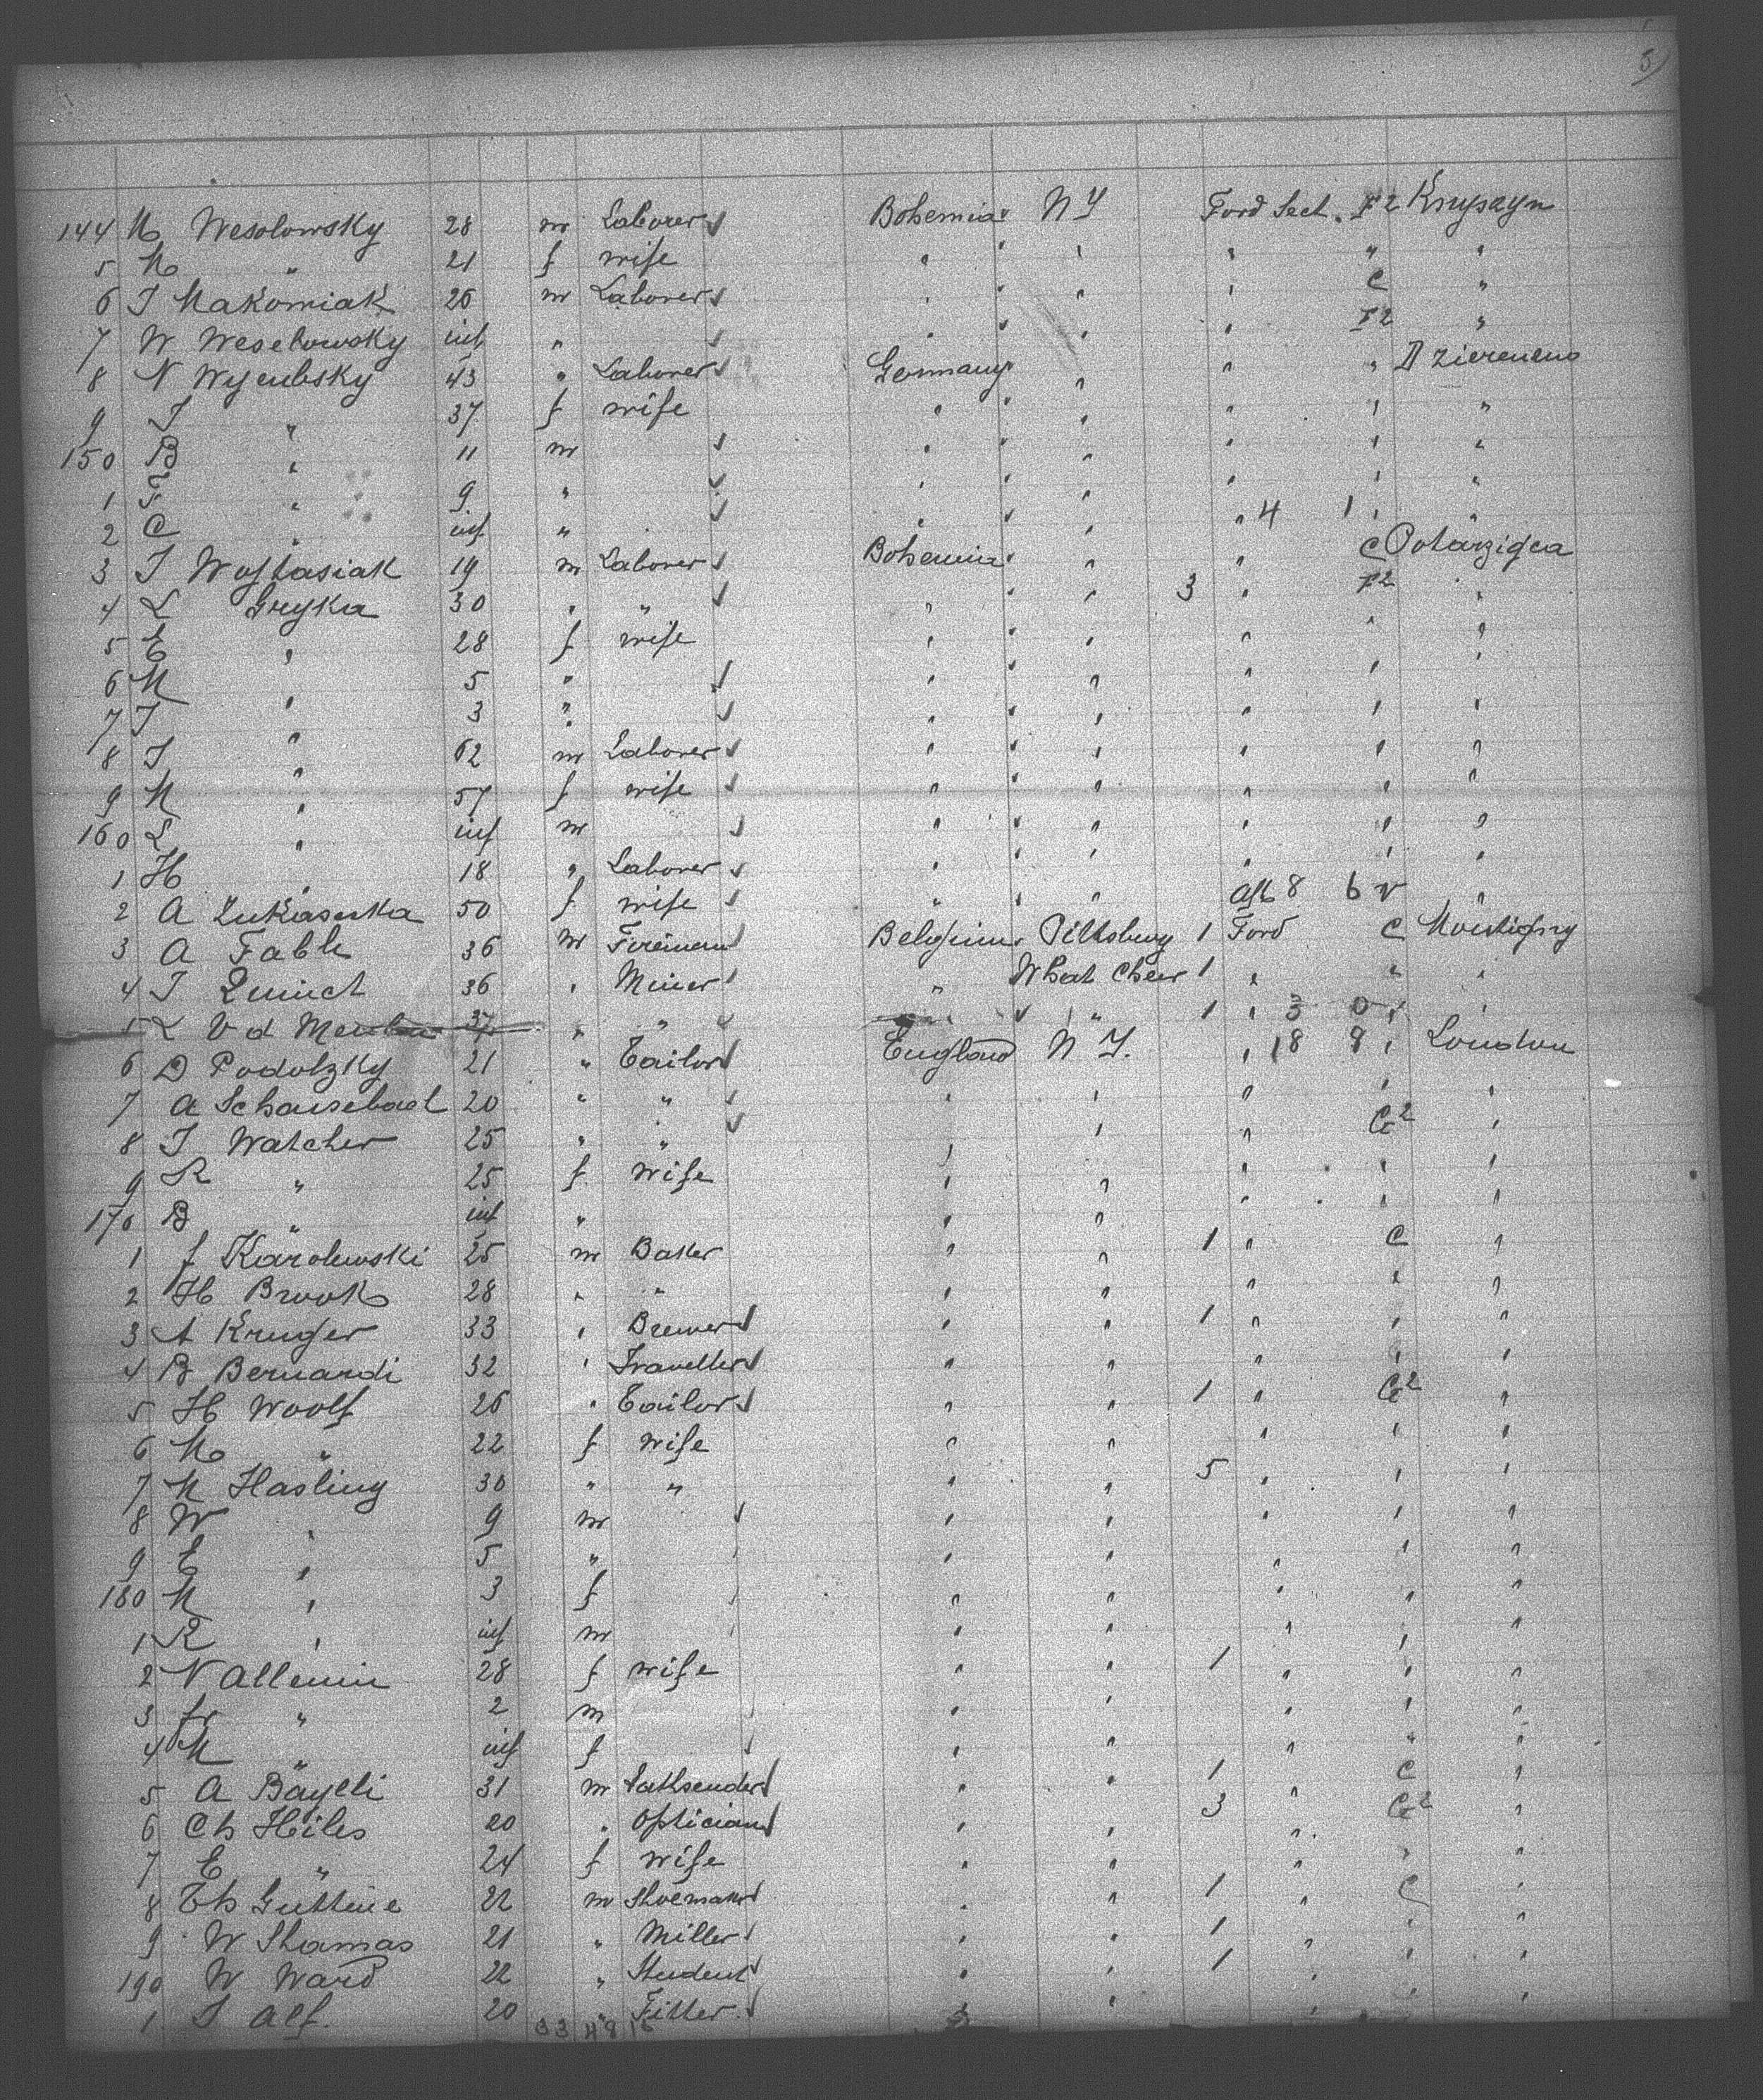 3
144 M Wesolowsky 28 m Laborer Bohemia NY Ford Sect. F2
5 M " 21 f wife " " " " "
6 J Makomiak 26 m Laborer " " " C "
7 W Wesolowsky inf " " " " F2 "
8 N 43 " Laborer Germany " " "
9 J " 37 f wife " " " " "
150 B " 11 m " " " " "
1 F " 9 " " " " " "
2 C " inf " " " " 4 1 " "
3 J Woftasiak 19 m Laborer Bohemia " " C
4 L Gryka 30 " " " " 3 " F2 "
5 E " 28 f wife " " " " "
6 M " 5 " " " " " "
7 J " 3 " " " " " "
8 J " 62 m Laborer " " " " "
9 M " 57 f wife " " " " "
160 L " inf m " " " " "
1 H " 18 " Laborer " " " " "
2 A 50 f wife " " Aft 8 6 "
3 A Fable 36 m Fireman Belgium Pittsburg 1 Ford C
4 J 36 " Miner " What Cheer 1 " " "
5 L V d 37 " " " " 1 " 3 0 " "
6 D Podolzky 21 " Tailor England N Y. " 18 8 " London
7 A 20 " " " " " " "
8 J Watcher 25 " " " " " C2 "
9 R " 25 f wife " " " " "
170 B " inf " " " " " "
1 J Karolewski 25 m Baker " " 1 " C "
2 H Brook 28 " " " " " " "
3 A Kruger 33 " Brewer " " 1 " " "
4 B Bernardi 32 " Traveller " " " " "
5 H Woolf 26 " Tailor " " 1 " C2 "
6 M " 22 f wife " " " " "
7 M Hasling 30 " " " " 5 " " "
8 W " 9 m " " " " "
9 E " 5 " " " " " "
180 M " 3 f " " " " "
1 R " inf m " " " " "
2 N Allemin 28 f wife " " 1 " " "
3 " 2 m " " " " "
4 M " inf f " " " " "
5 A 31 m " " 1 " C "
6 Ch Heiles 20 " Optician " " 3 " C2 "
7 E " 24 f wife " " " " "
8 Th 22 m Shoemaker " " 1 " C "
9 W Shamas 21 " Miller " " 1 " " "
190 W Ward 22 " Student " " 1 " " "
1 J Alf. 20 " Fitter " " " " "